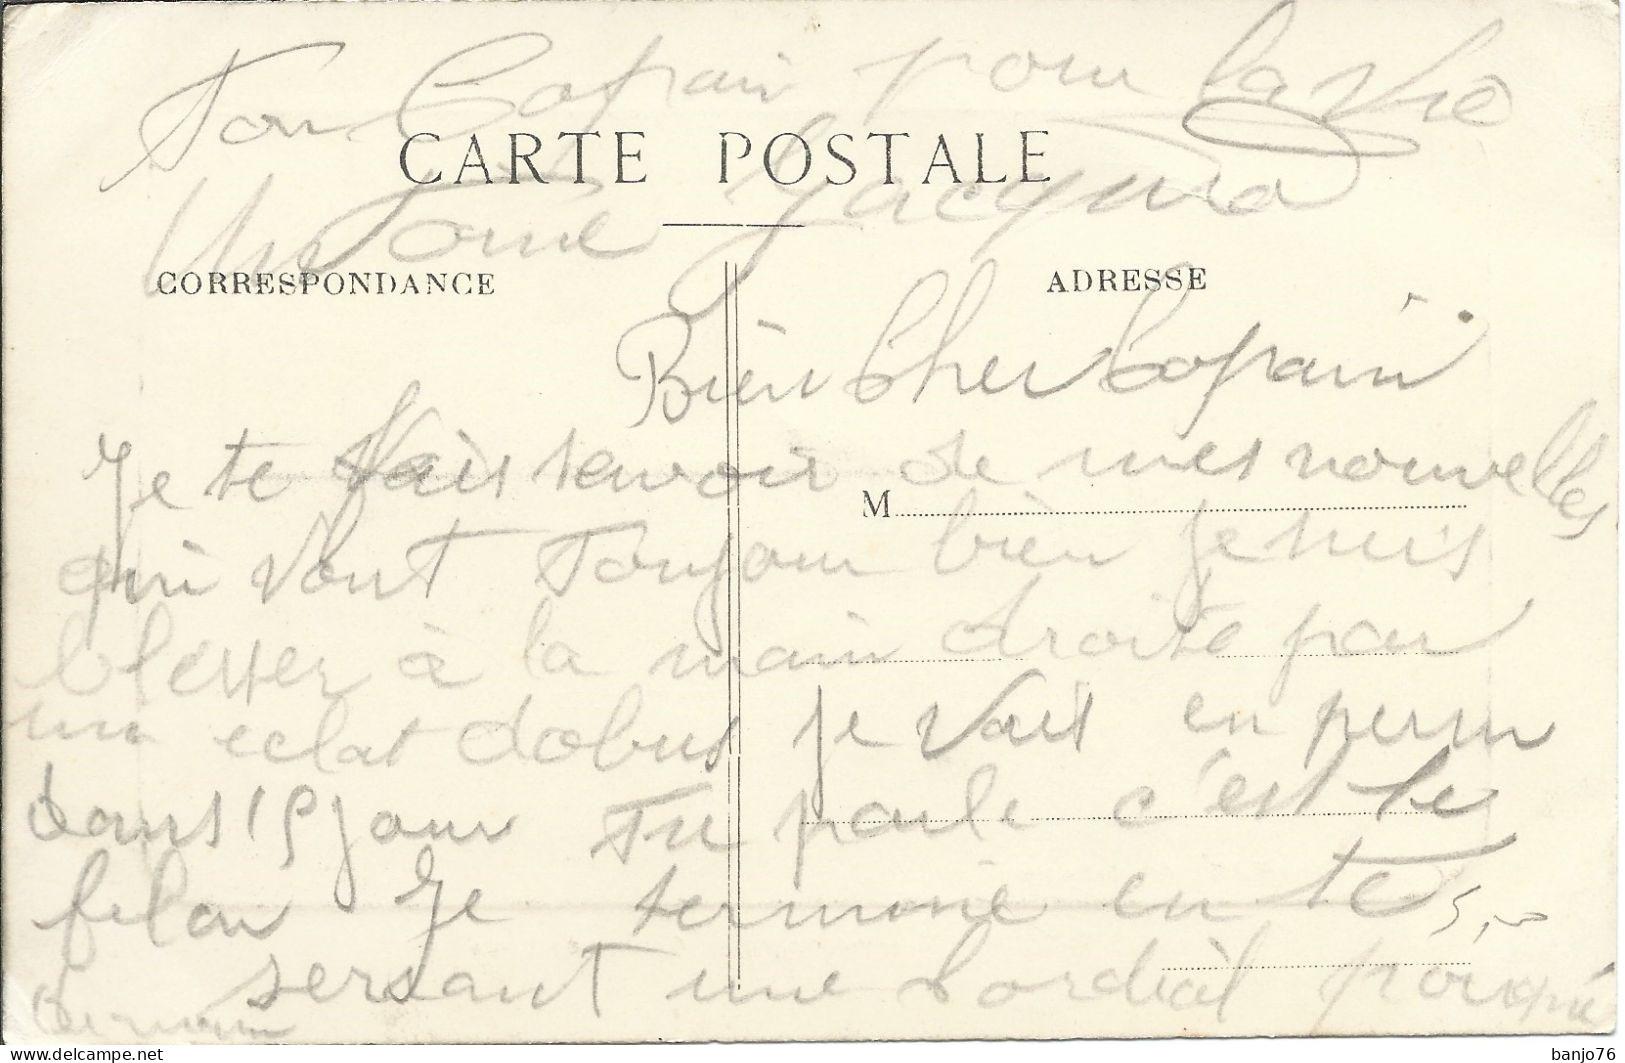 Ton Copain pour la vie
CARTE POSTALE
Jacquna
CORRESPONDANCE
ADRESSE
Bien Cher Copain
Je te fais savoir de mes nouvelles
M
qui vont toujour bien Je suis
blesser à la main droite par
un eclat dobus je vais en perm
dans 15 jour Tu parle c'est le
filon Je termine en te
5,00
sersant une Cordial poigné
banjo76